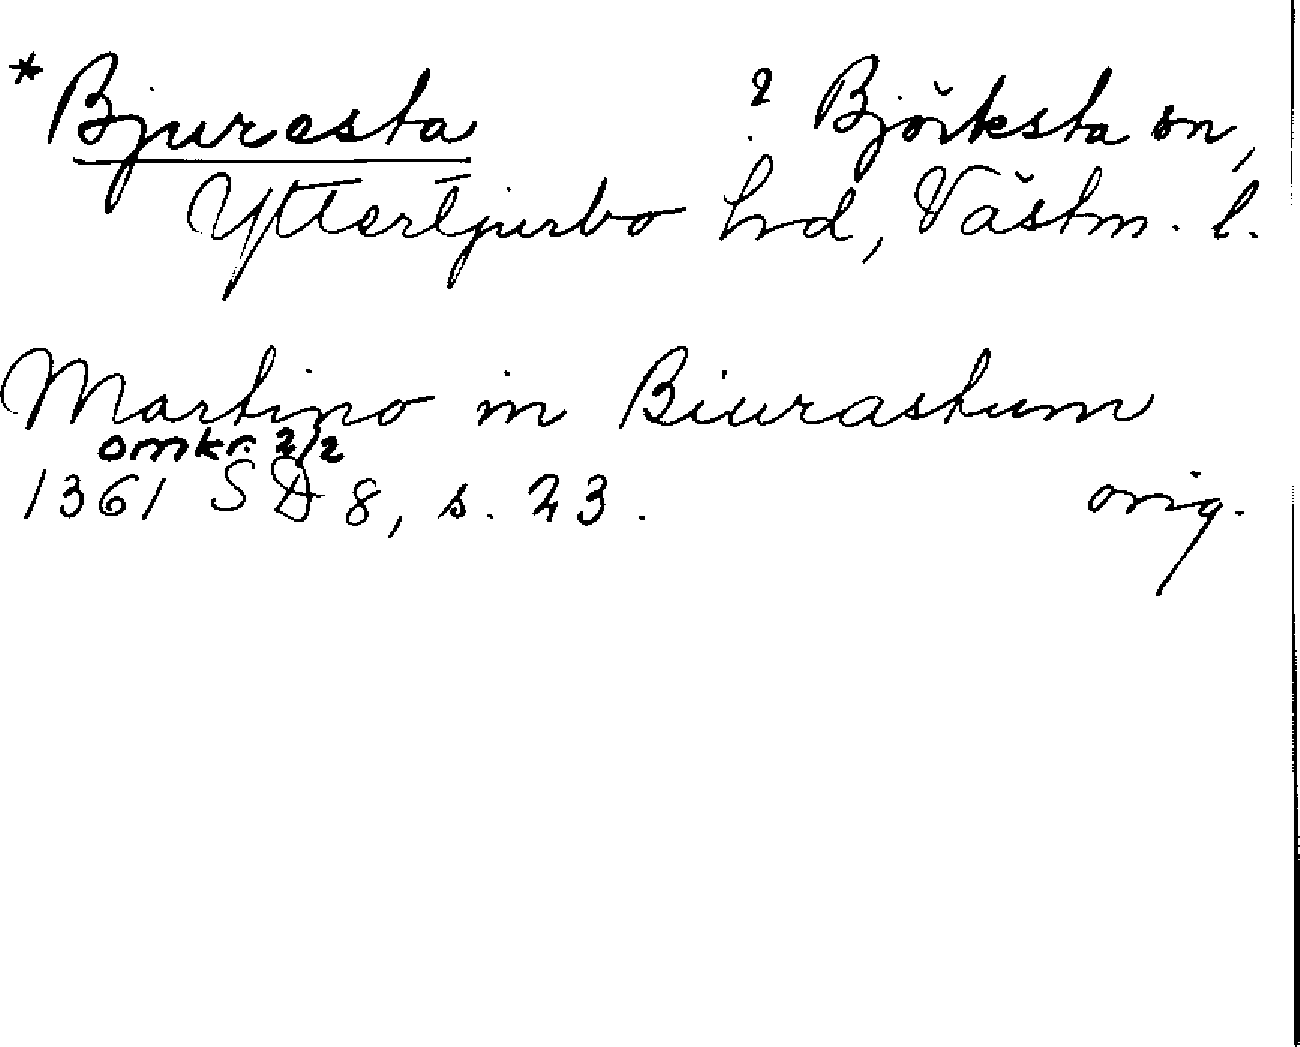 * Bjuresta ? Björksta sn,
Yttertjurbo hrd, Västm. l.
Martino in Biurastum
omkr. 2/2
1361 SD 8, s. 23. orig.